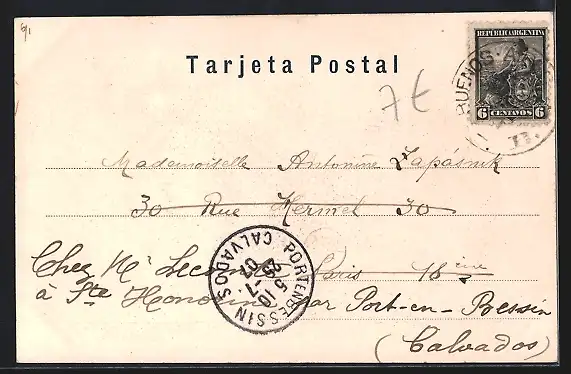 6/1
Tarjeta Postal
REPUBLICA ARGENTINA
6 CENTAVOS 6
BUENOS
7 €
Mademoiselle Antonine Lapásnik
30 Rue Hermel 30
Paris 18 ème
Chez Mr
à Ste Honorine par Port-en-Bessin
(Calvados)
PORT-EN-BESSIN
CALVADOS
5 10
25 -7
07